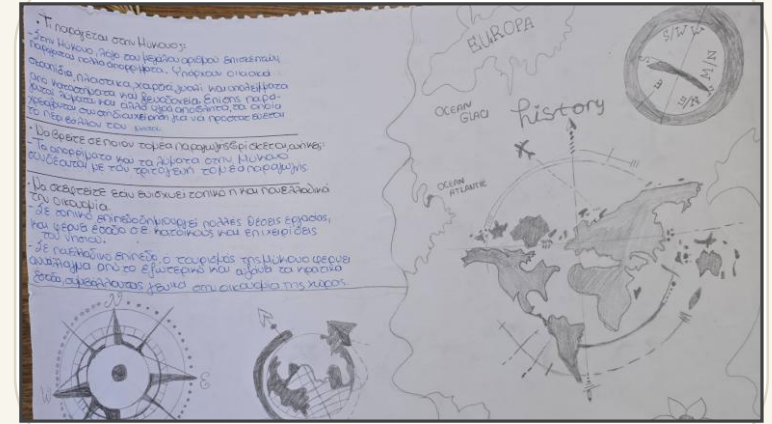 • Τι παράγεται στην Μύκονο;
- Στην Μύκονο, λόγω του μεγάλου αριθμού επισκεπτών,
παράγονται πολλά απορρίματα. Υπάρχουν οικιακά
σκουπίδια, πλαστικά, χαρτιά, γυαλί και υπολείμματα
από καταστήματα και ξενοδοχεία. Επίσης παρά-
γονται λύματα και άλλα υγρά απόβλητα, τα οποία
χρειάζονται σωστή διαχείριση για να προστατεύεται
το περιβάλλον του
• Να βρείτε σε ποιον τομέα παραγωγής βρίσκεται,ανήκει;
- Τα απορρίματα και τα λύματα στην Μύκονο
συνδέονται με τον τριτογενή τομέα παραγωγής
• Να σκεφτείτε εαν ενισχύει τοπικά ή και πανελλαδικά
την οικονομία.
- Σε τοπικό επίπεδο δημιουργεί πολλές θέσεις εργασίας,
και φέρνει έσοδα σε κατοίκους και επιχειρήσεις
του νησιού.
- Σε πανελλαδικό επίπεδο, ο τουρισμός της Μύκονο φέρνει
συνάλλαγμα από το εξωτερικό και αυξάνει τα κρατικά
έσοδα, συμβάλλοντας γενικά στην οικονομία της χώρας
EUROPA
OCEAN
GLACI
history
OCEAN
ATLANTIC
S/W
N/W
N
W
E